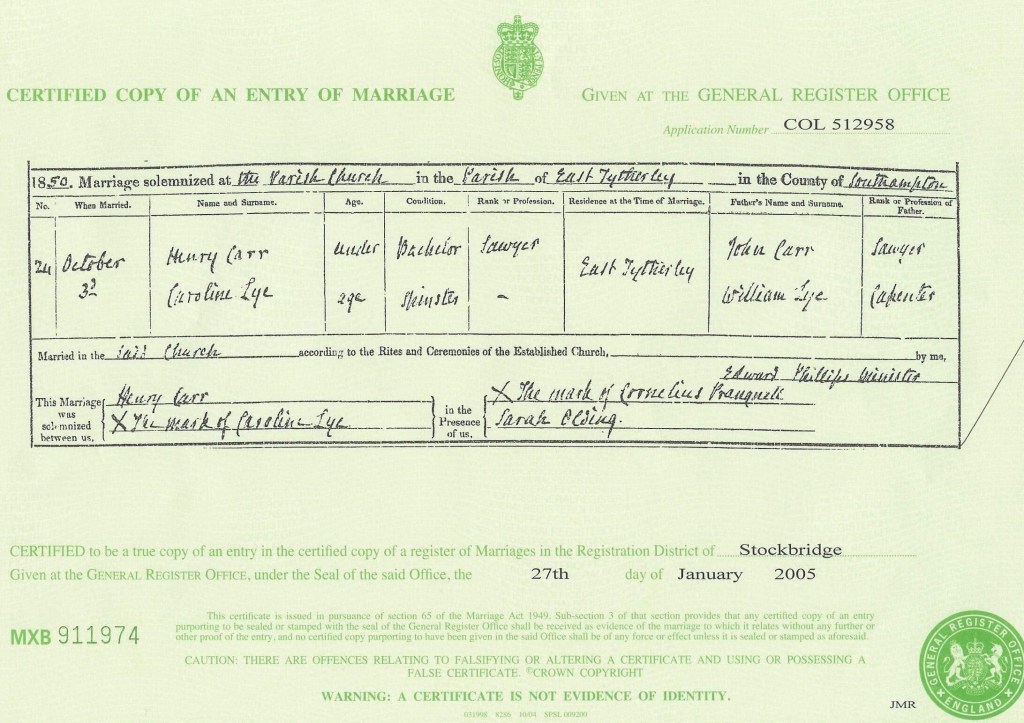 CERTIFIED COPY OF AN ENTRY OF MARRIAGE
GIVEN AT THE GENERAL REGISTER OFFICE
Application Number COL 512958
1850. Marriage solemnized at the Parish Church in the Parish of East Tytherley in the County of Southampton
No. When Married. Name and Surname. Age. Condition. Rank or Profession. Residence at the Time of Marriage. Father's Name and Surname. Rank or Profession of Father.
24 October 3d Henry Carr under Bachelor Sawyer East Tytherley John Carr Sawyer
Caroline Lye age Spinster - William Lye Capenter
Married in the said Church according to the Rites and Ceremonies of the Established Church, by me,
Edward Phillips Minister
This Marriage was solemnized between us, Henry Carr
X The mark of Caroline Lye
in the Presence of us, X The mark of Cornelius
Sarah Olding.
CERTIFIED to be a true copy of an entry in the certified copy of a register of Marriages in the Registration District of Stockbridge
Given at the GENERAL REGISTER OFFICE, under the Seal of the said Office, the 27th day of January 2005
MXB 911974
This certificate is issued in pursuance of section 65 of the Marriage Act 1949. Sub-section 3 of that section provides that any certified copy of an entry
purporting to be sealed or stamped with the seal of the General Register Office shall be received as evidence of the marriage to which it relates without any further or
other proof of the entry, and no certified copy purporting to have been given in the said Office shall be of any force or effect unless it is sealed or stamped as aforesaid.
CAUTION: THERE ARE OFFENCES RELATING TO FALSIFYING OR ALTERING A CERTIFICATE AND USING OR POSSESSING A
FALSE CERTIFICATE. ©CROWN COPYRIGHT
WARNING: A CERTIFICATE IS NOT EVIDENCE OF IDENTITY.
JMR
GENERAL REGISTER OFFICE
ENGLAND